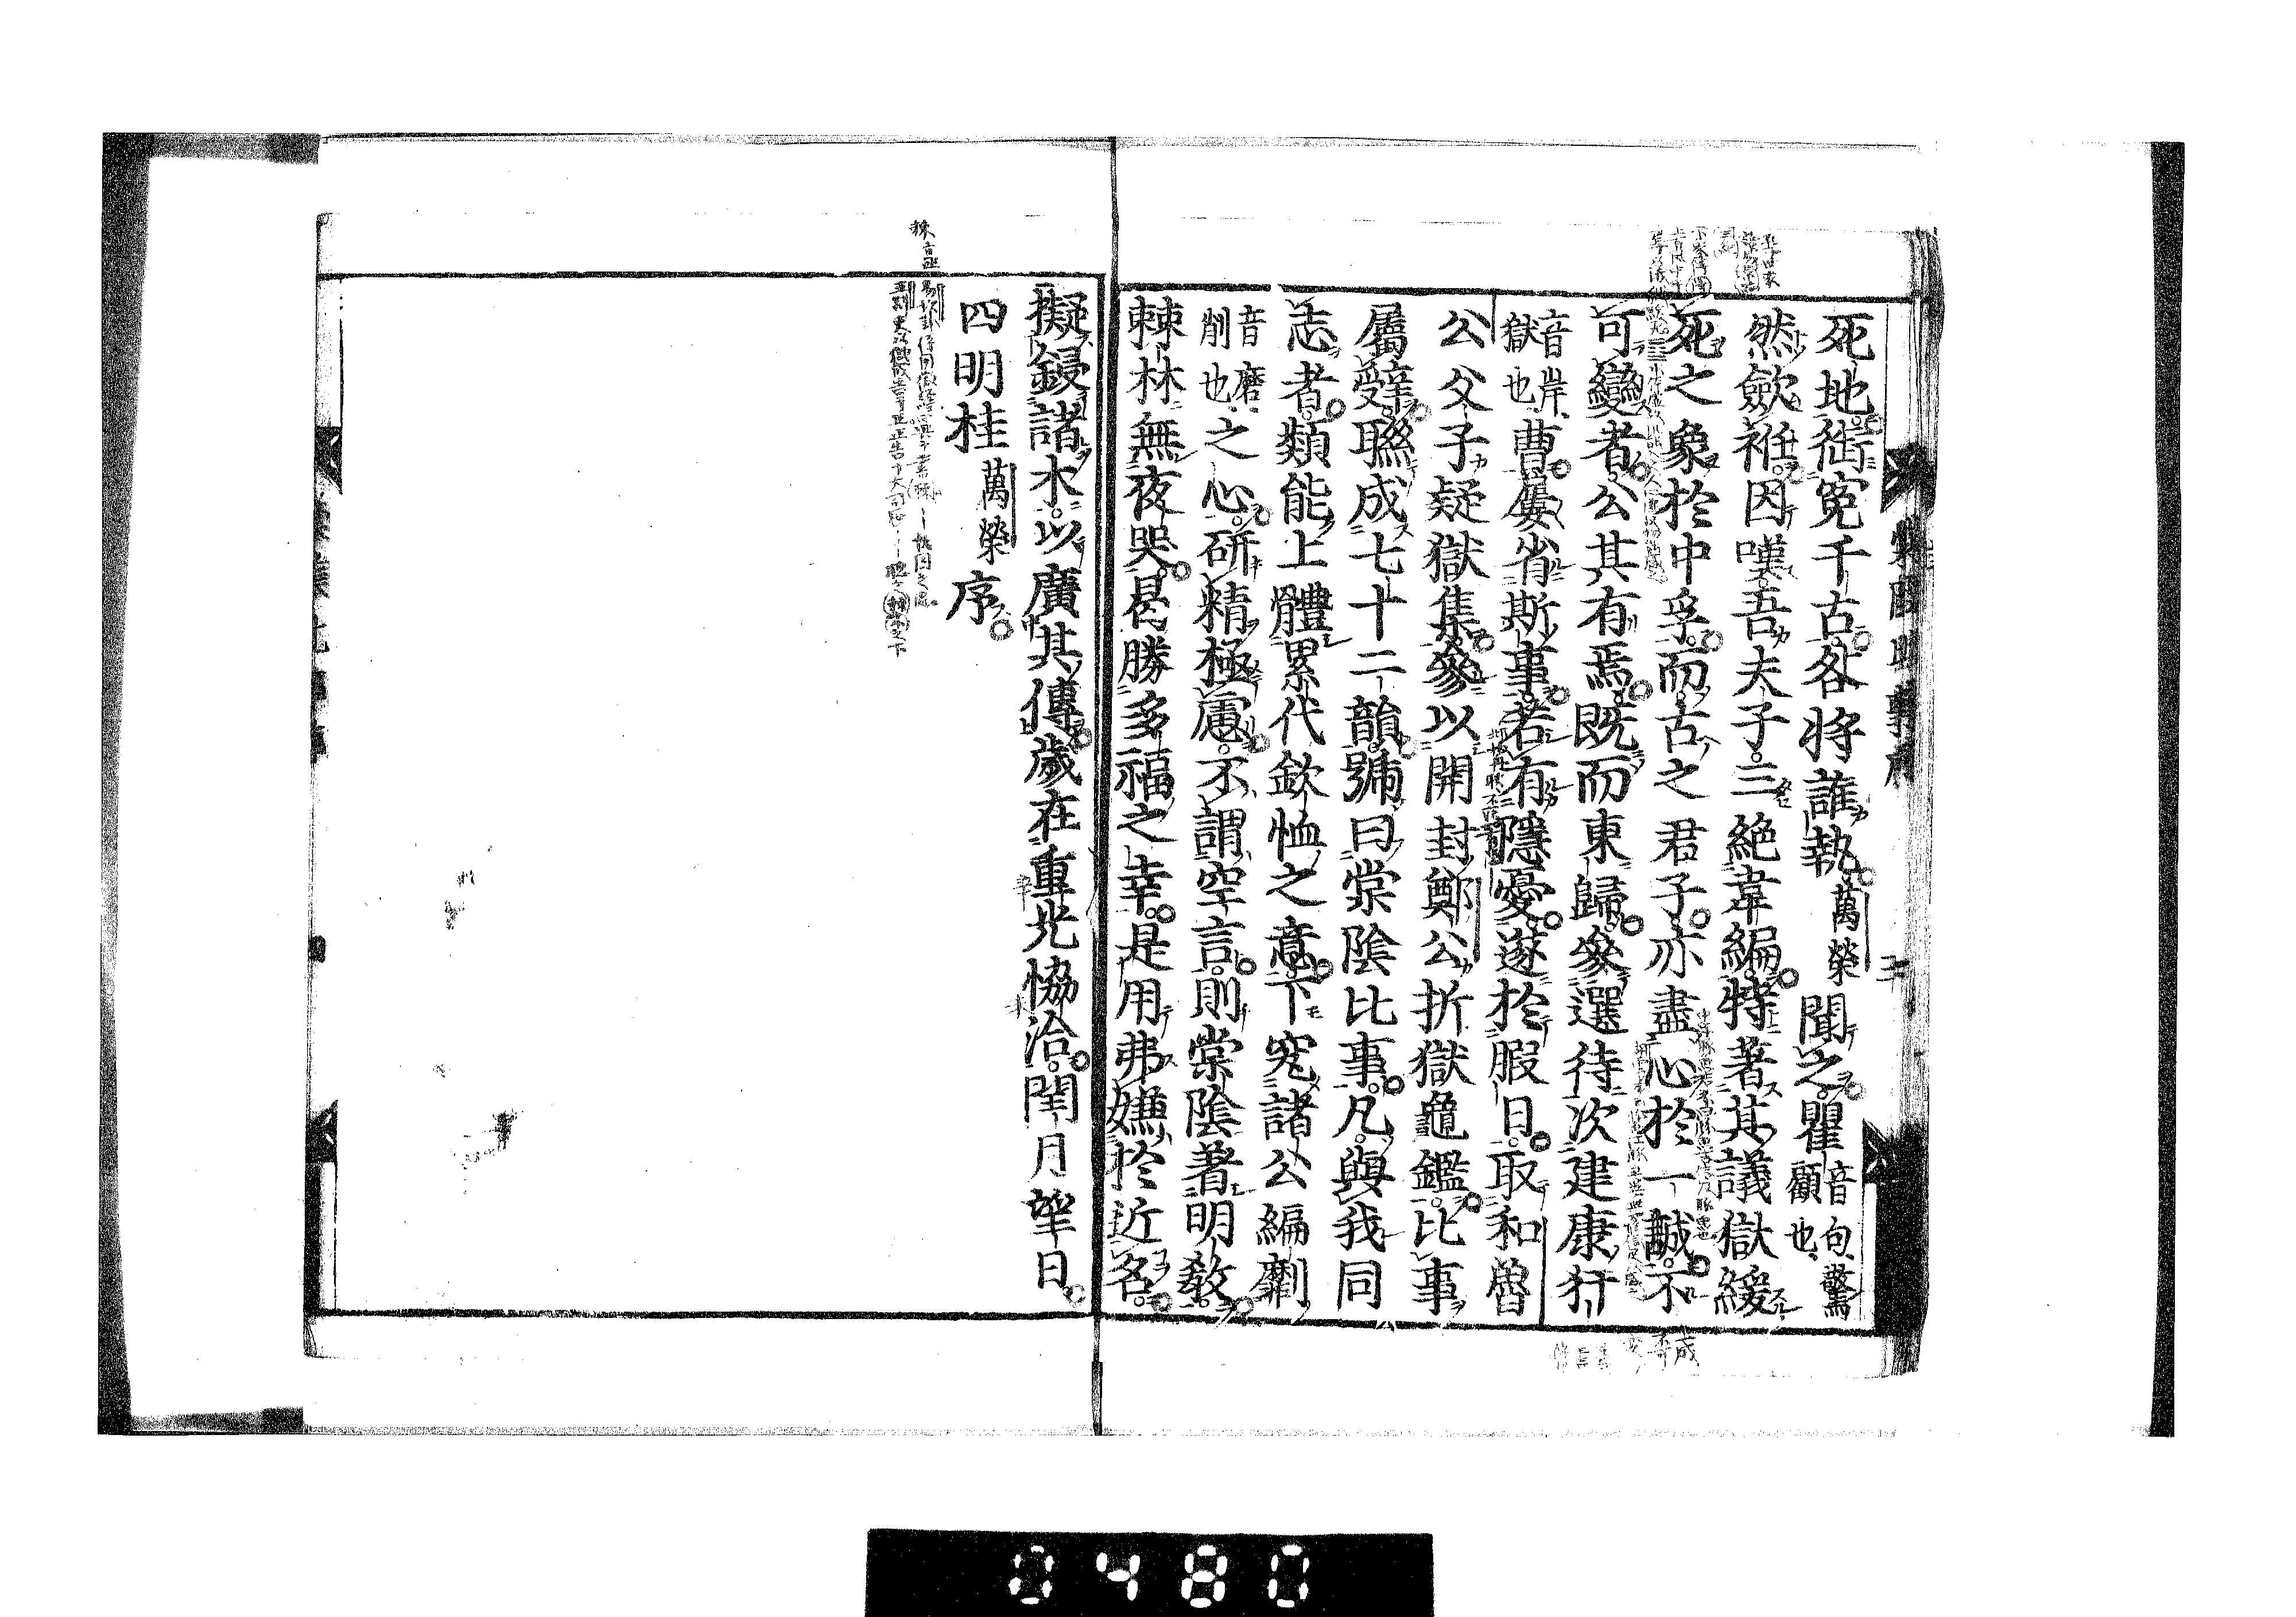 死地銜寃千古咎將誰執萬榮聞之瞿音句驚顧也
然斂袵因嘆吾夫子三絶韋編特著其議獄緩
死之象於中孚而古之君子亦盡心於一誠不
可變者公其有焉既而東歸參選待次建康犴
音岸獄也曹屢省斯事若有隱憂遂於暇日取和魯
公父子疑獄集參以開封鄭公折獄龜鑑比事
屬辭聯成七十二韻號曰棠陰比事凡與我同
志者類能上體累代欽恤之意下究諸公編劘
音磨削也之心研精極慮不謂空言則棠陰著明敎
棘林無夜哭曷勝多福之幸是用弗嫌於近名
擬鋟諸木以廣其傳歲在重光協洽閏月望日
四明桂萬榮序
三
0480